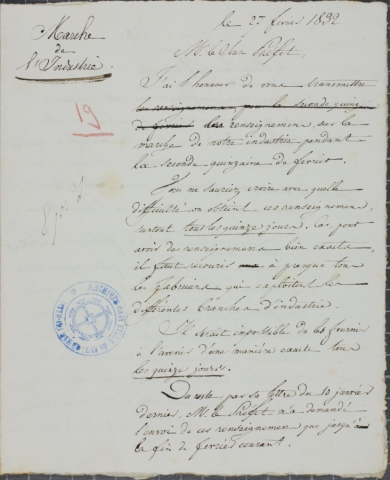 Marche
de
l'Industrie.
le 27 fevrier 1832
M. le Préfet,
19
J'ai l'honneur de vous transmettre
les renseignemens, pour la seconde
de fevrier les renseignemens sur la
marche de notre industrie pendant
la seconde quinzaine de fevrier.
Vous ne sauriez croire avec quelle
difficulté on obtient ces renseignemens
surtout tous les quinze jours. Car pour
avoir des renseignemens bien exacts
il faut recourir à presque tous
les fabricans qui exploitent les
differentes branches d'industrie.
Il serait impossible de les fournir
à l'avenir d'une manière exacte tous
les quinze jours.
Du reste par sa lettre du 10 janvier
dernier, M. le Prefet n'a demandé
l'envoi de ces renseignemens que jusqu'à
la fin de fevrier courant.